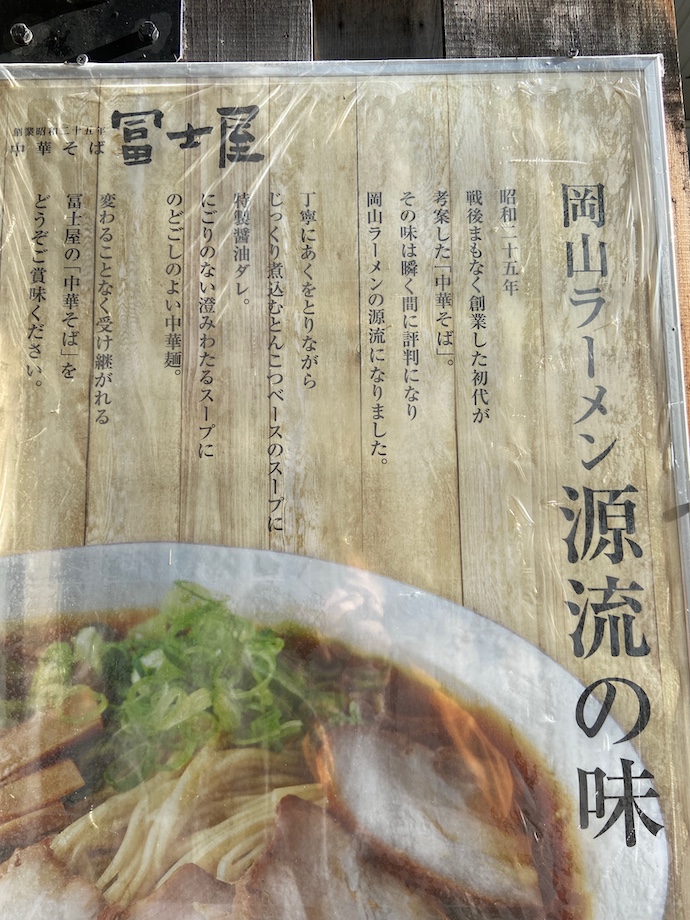 岡山ラーメン源流の味
昭和二十五年
戦後まもなく創業した初代が
考案した「中華そば」。
その味は瞬く間に評判になり
岡山ラーメンの源流になりました。
丁寧にあくをとりながら
じっくり煮込むとんこつベースのスープに
特製醤油ダレ。
にごりのない澄みわたるスープに
のどごしのよい中華麺。
変わることなく受け継がれる
冨士屋の「中華そば」を
どうぞご賞味ください。
創業昭和二十五年
中華そば
冨士屋